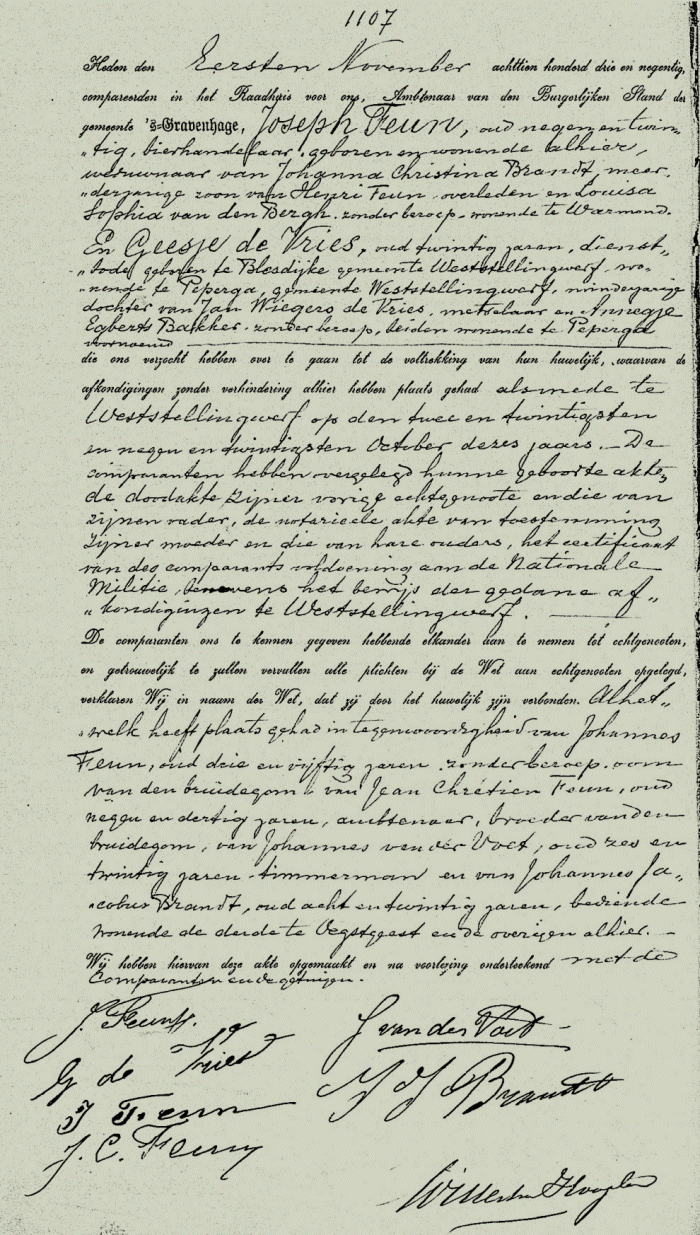 1107
Heden den Eersten November achttien honderd drie en negentig,
compareerden in het Raadhuis voor ons, Ambtenaar van den Burgerlijken Stand der
gemeente 's-Gravenhage, Joseph Feun, oud negen en twin„
„tig, bierhandelaar, geboren en wonende alhier,
weduwnaar van Johanna Christina Brandt, meer„
„derjarige zoon van Henri Feun overleden en Louisa
Sophia van den Bergh. zonder beroep. wonende te Warmond.
En Geesje de Vries, oud twintig jaren, dienst„
„bode, geboren te Blesdijke gemeente Weststellingwerf, wo„
„nende te Peperga, gemeente Weststellingwerf, minderjarige
dochter van Jan Wiegers de Vries, metselaar en Annegje
Egberts Bakker. zonder beroep, beiden wonende te Peperga
voornoemd
die ons verzocht hebben over te gaan tot de voltrekking van hun huwelijk, waarvan de
afkondigingen zonder verhindering alhier hebben plaats gehad alsmede te
Weststellingwerf op den twee en twintigsten
en negen en twintigsten October dezes jaars. — De
comparanten hebben overgelegd hunne geboorte akte,
de doodakte zijner vorige echtgenoote en die van
zijnen vader, de notarieele akte van toestemming
zijner moeder en die van hare ouders, het certificaat
van des comparants voldoening aan de Nationale
Militie, benevens het bewijs der gedane af„
„kondigingen te Weststellingwerf.
De comparanten ons te kennen gegeven hebbende elkander aan te nemen tot echtgenooten,
en getrouwelijk te zullen vervullen alle plichten bij de Wet aan echtgenooten opgelegd,
verklaren Wij in naam der Wet, dat zij door het huwelijk zijn verbonden. Alhet„
„welk heeft plaats gehad in tegenwoordigheid van Johannes
Feun, oud drie en vijftig jaren. zonder beroep. oom
van den bruidegom, van Jean Chrétien Feun, oud
negen en dertig jaren, ambtenaar, broeder van den
bruidegom, van Johannes van der Voet, oud zes en
twintig jaren. timmerman en van Johannes Ja„
„cobus Brandt, oud acht en twintig jaren, bediende
wonende de derde te Oegstgeest en de overigen alhier. —
Wij hebben hiervan deze akte opgemaakt en na voorlezing onderteekend met de
Comparanten en de getuigen.
J. Feun
J van der Voet
G de Vries
J J Brandt
J Feun
J. C. Feun